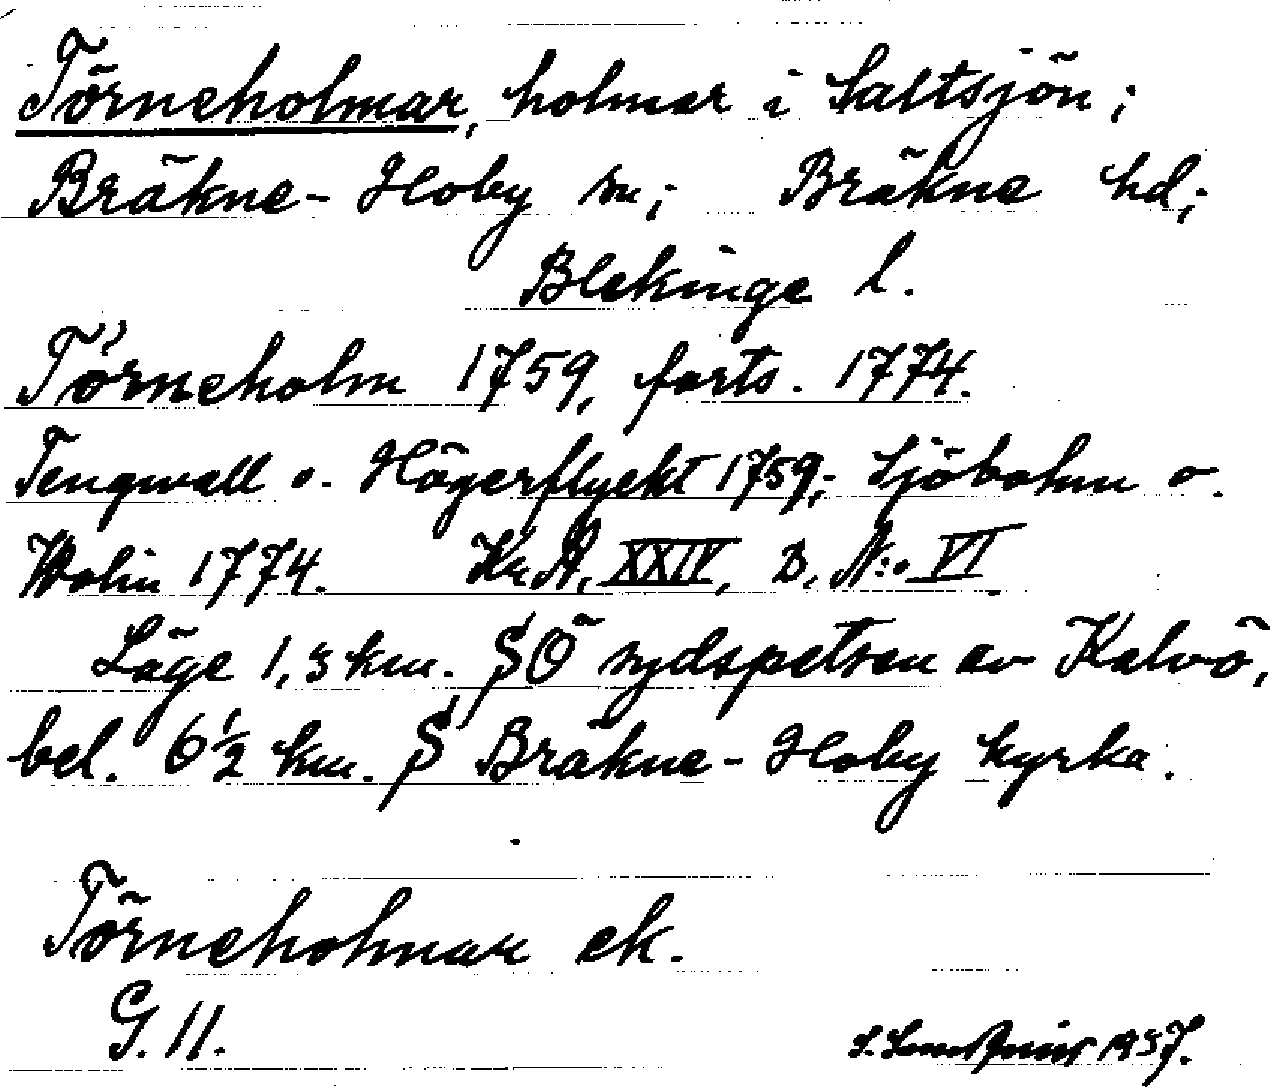 Törneholmar, holmar i Saltsjön;
Bräkne-Hoby sn; Bräkne hd;
Blekinge l.
Törneholm 1759, forts. 1774.
Tengwall o. Hägerflyckt 1759; Sjöbohm o.
Wolin 1774. Kr. A. XXIV, D. N:o VI
Läge 1,3 km. SÖ sydspetsen av Kalvö,
bel. 6½ km. S Bräkne-Hoby kyrka.
Törneholmar ek.
G. 11.
1937.